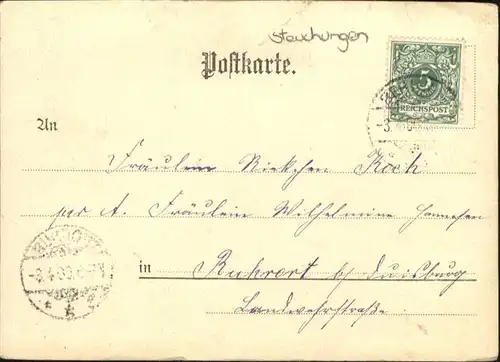 stauchungen
Postkarte.
5
REICHSPOST
An
Fräulein Riekchen Koch
per A. Fräulein Wilhelmine
in Ruhrort b/ Duisburg
Landwehrstraße